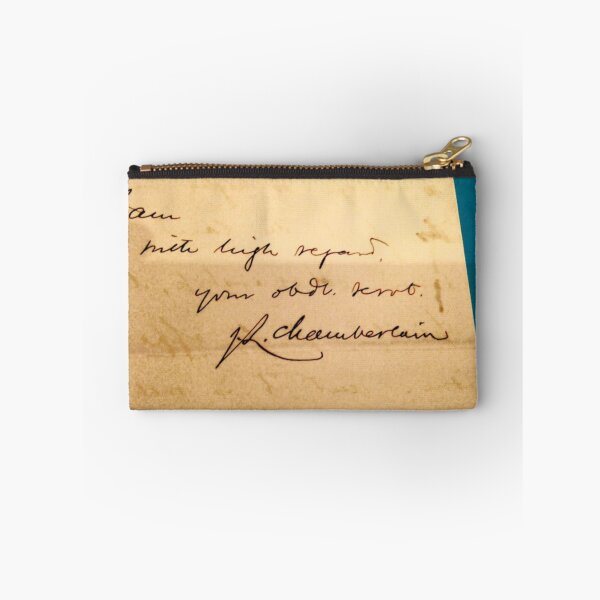 am
with high regard,
your obdt. servt.
J. L. Chamberlain